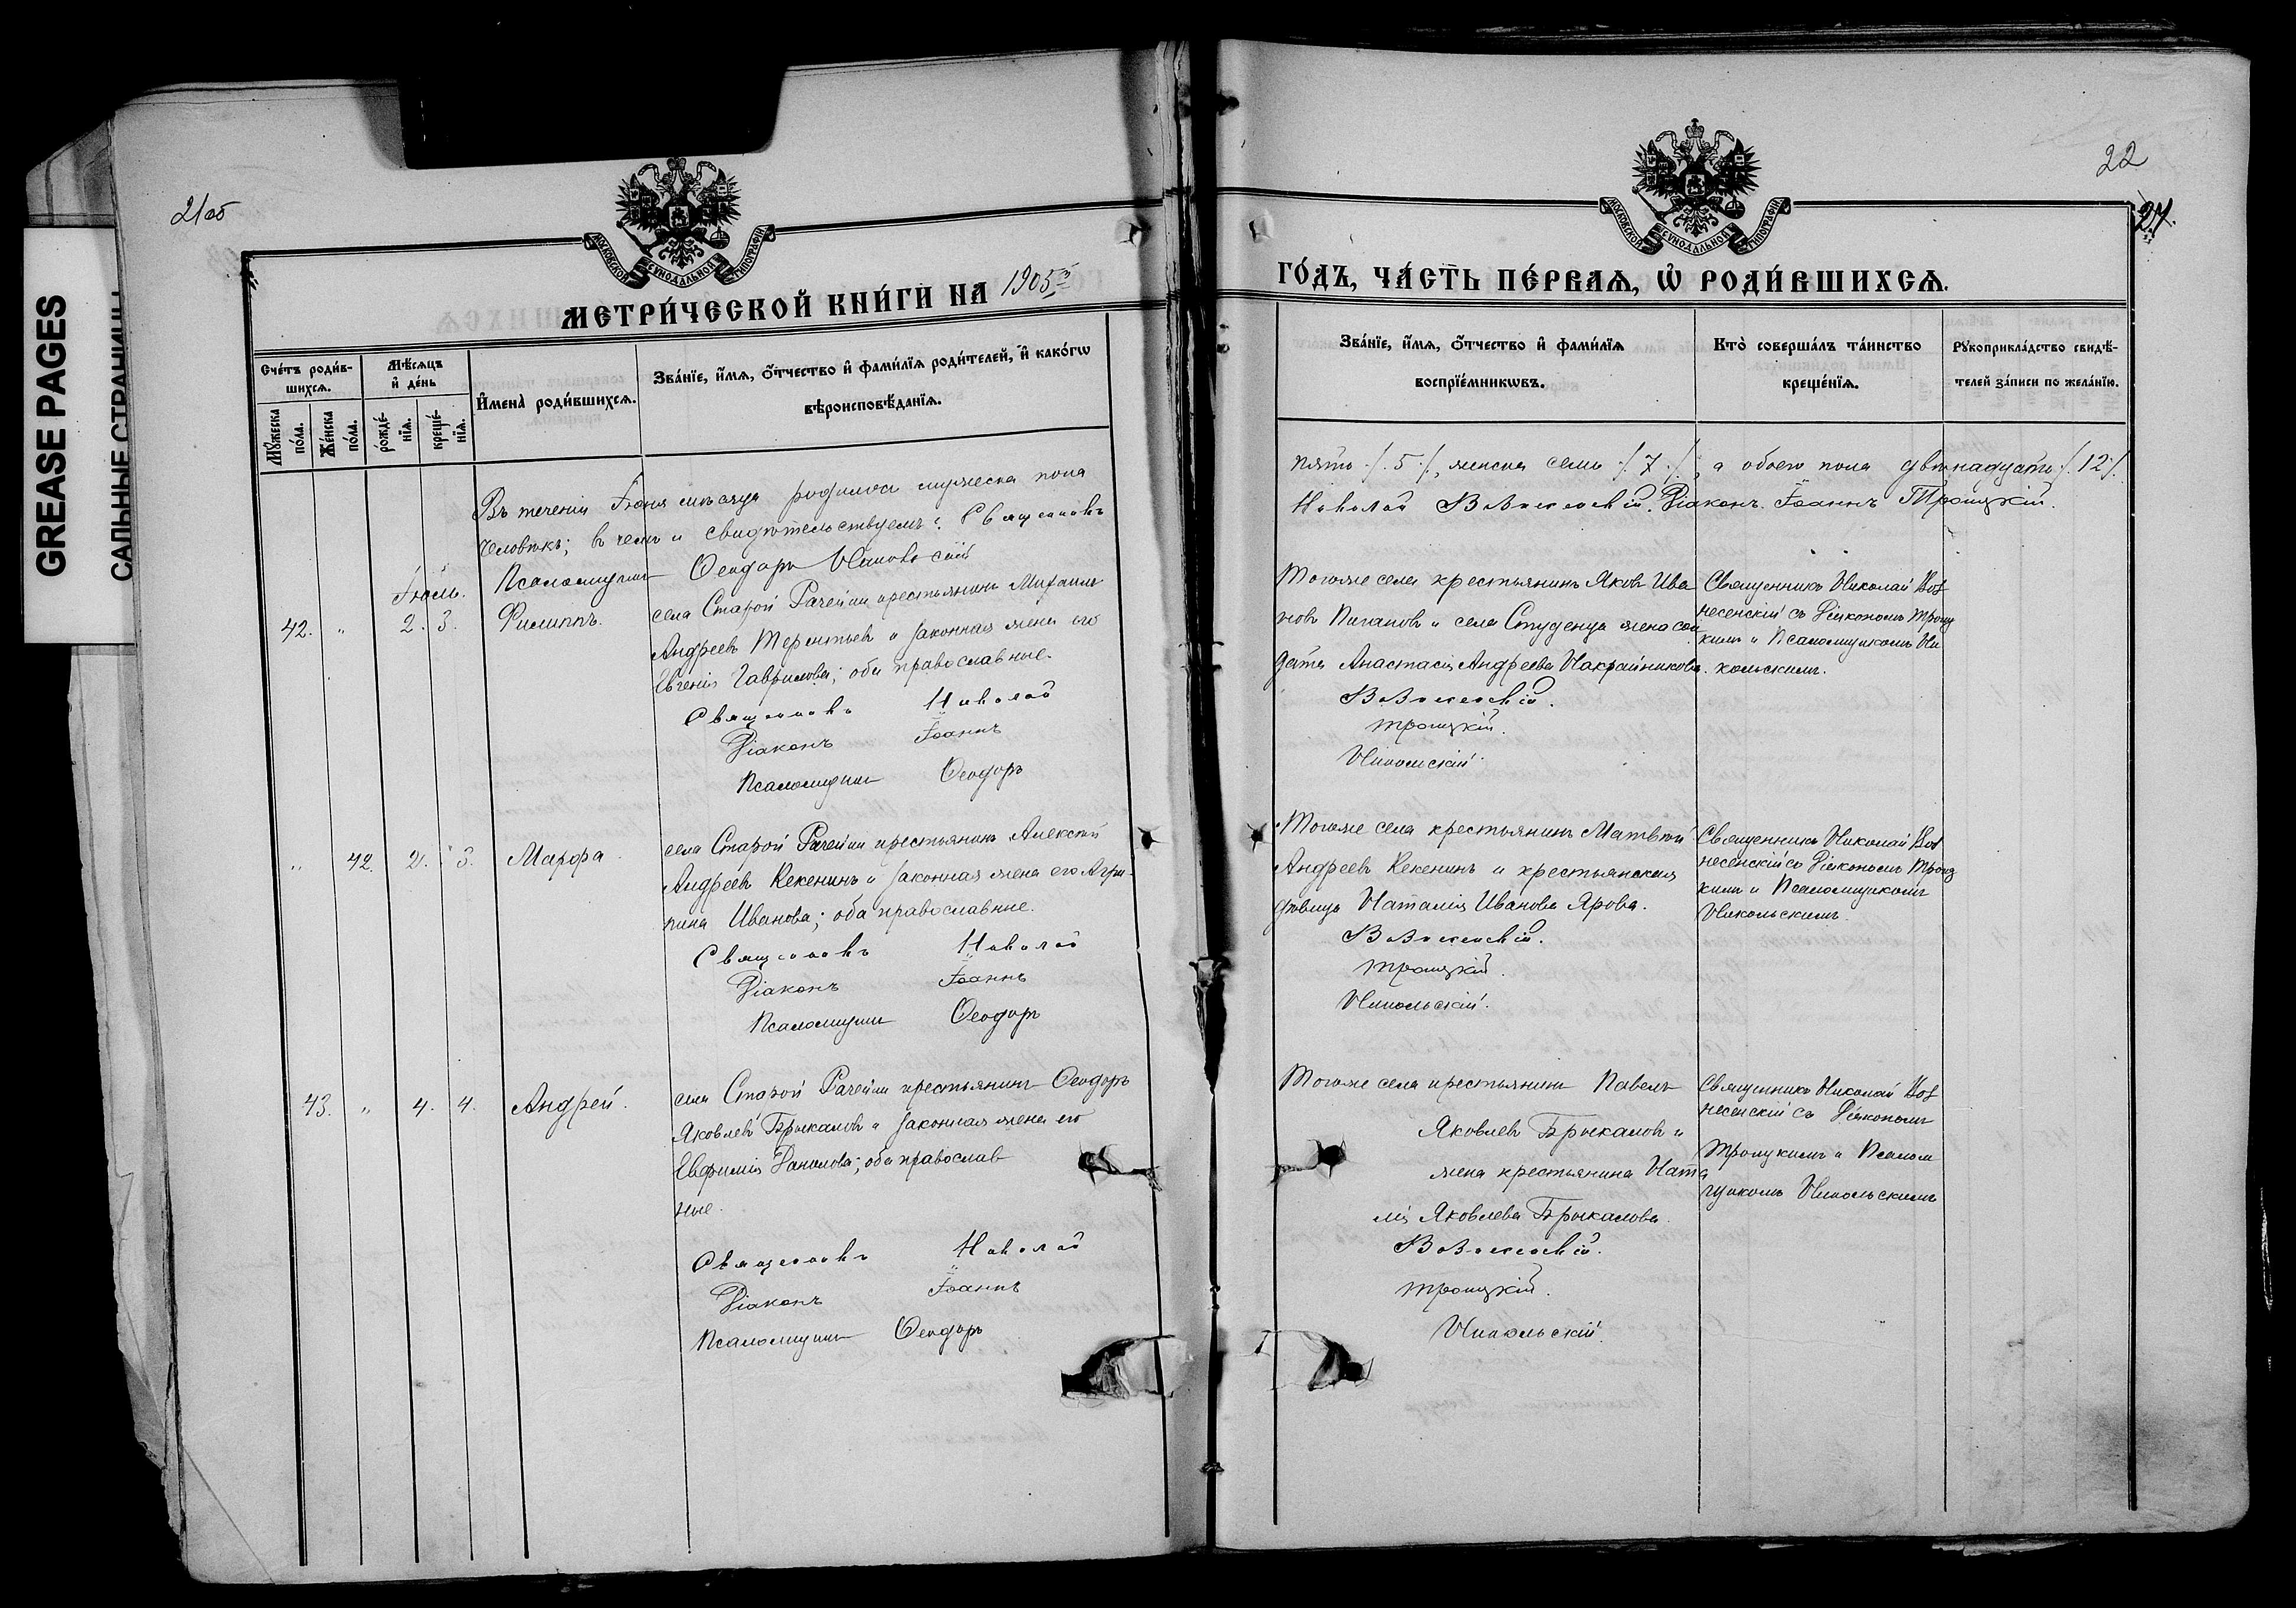 GREASE PAGES
САЛЬНЫЕ СТРАНИЦЫ
21об
МОСКОВСКОЙ СѴНОДАЛЬНОЙ ТИПОГРАФІИ
МЕТРИ́ЧЕСКОЙ КНИ́ГИ НА 1905й
Сче́тъ роди́в-
шихся.
Мꙋжеска по́ла.
Же́нска по́ла.
Мѣ́сяцъ и де́нь
рожде́-
нїя.
креще́-
нїя.
Имена̀ роди́вшихся.
Зва́нїе, и́мя, о́тчество и фами́лїя роди́телей, и како́гѡ
вѣроисповѣ́данїя.
Въ теченіи Іюня мѣсяца родилось мужеска пола
человѣкъ; въ чемъ и свидѣтельствуемъ: Священникъ
Псаломщикъ Ѳеодоръ Никольскій
Іюль.
42. " 2. 3. Филиппъ. села Старой Рачейки крестьянинъ Михаилъ
Андреевъ Терентьевъ и законная жена его
Евгенія Гаврилова; оба православные.
Священникъ Николай
Діаконъ Іоаннъ
Псаломщикъ Ѳеодоръ
" 42. 2. 3. Марѳа. села Старой Рачейки крестьянинъ Алексѣй
Андреевъ Кекенинъ и законная жена его Агри-
пина Иванова; оба православные.
Священникъ Николай
Діаконъ Іоаннъ
Псаломщикъ Ѳеодоръ
43. " 4. 4. Андрей. села Старой Рачейки крестьянинъ Ѳеодоръ
Яковлевъ Брыкаловъ и законная жена его
Евфимія Данилова; оба православ
ные.
Священникъ Николай
Діаконъ Іоаннъ
Псаломщикъ Ѳеодоръ
22
27.
МОСКОВСКОЙ СѴНОДАЛЬНОЙ ТИПОГРАФІИ
ГО́ДЪ, ЧА́СТЬ ПЕ́РВАЯ, Ѡ РОДИ́ВШИХСЯ.
Зва́нїе, и́мя, о́тчество и фами́лїя
воспрїе́мникѡвъ.
Кто̀ соверша́лъ та́инство
креще́нїя.
Рꙋкоприкла́дство свидѣ́-
телей за́писи по жела́нїю.
пять /.5./, женска семь /.7./, а обоего пола двѣнадцать /.12./
Николай Вознесенскій. Діаконъ Іоаннъ Троицкій.
Тогоже села крестьянинъ Яковъ Ива
новъ Пигановъ и села Студенца жена сол
дата Анастасія Андреева Накрайникова.
Вознесенскій.
Троицкій.
Никольскій.
Священникъ Николай Воз
несенскій съ Діакономъ Троиц
кимъ и Псаломщикомъ Ни
кольскимъ.
Тогоже села крестьянинъ Матвѣй
Андреевъ Кекенинъ и крестьянская
дѣвица Наталія Иванова Ярова.
Вознесенскій.
Троицкій.
Никольскій.
Священникъ Николай Воз
несенскій съ Діакономъ Троиц
кимъ и Псаломщикомъ
Никольскимъ.
Тогоже села крестьянинъ Павелъ
Яковлевъ Брыкаловъ и
жена крестьянина Ната
лія Яковлева Брыкалова.
Вознесенскій.
Троицкій.
Никольскій.
Священникъ Николай Воз
несенскій съ Діакономъ
Троицкимъ и Псалом
щикомъ Никольскимъ